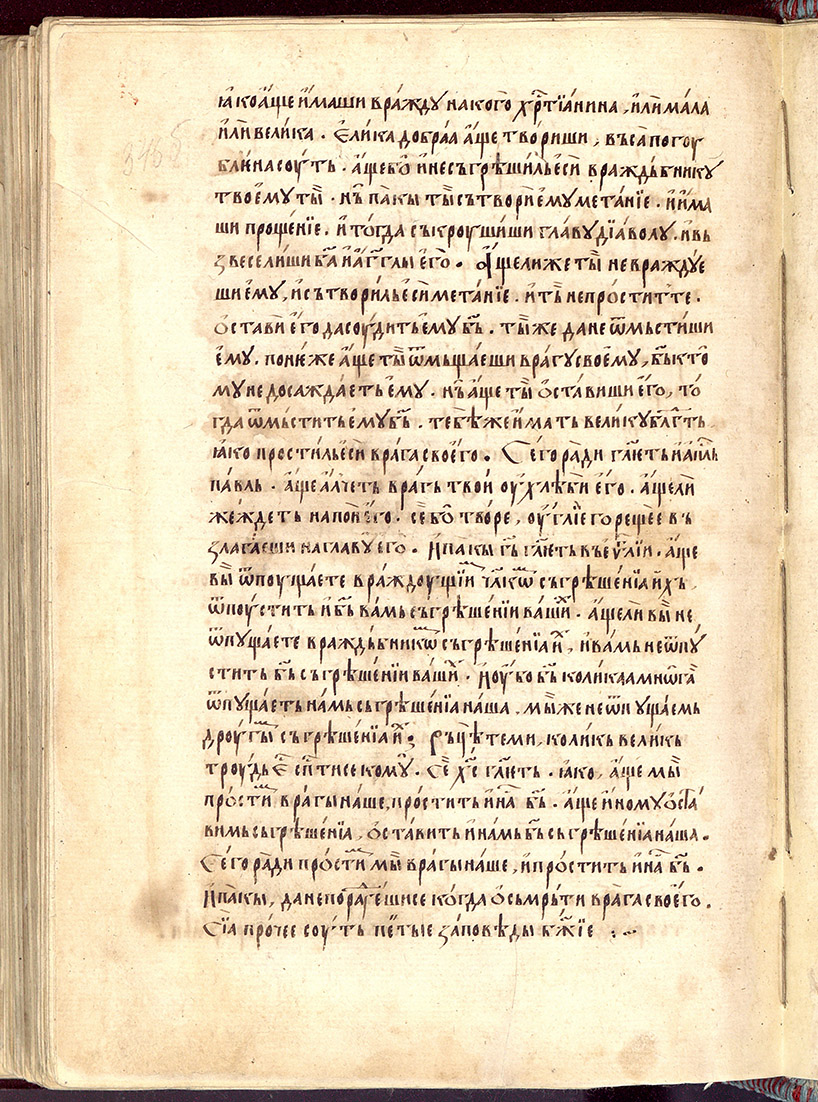 ꙗко а҆́ще и҆́маши вра́жду на кого̀ хр҃тїа́нина , и҆лѝ ма́ла
и҆лѝ вели́ка . є҆ли́ка до́браа а҆́ще тво́риши , въса̀ погоу
бле́на соу́ть . а҆́ще бо̀ и҆ не съгрѣши́ль є҆сѝ враждь́бникꙋ
твоє́мꙋ ты̀ . нь̀ па́кы ты̀ сътворѝ є҆мꙋ мета́нїе . и҆ и҆́ма
ши проще́нїе . и҆ то́гда съкроуши́ши гла́вꙋ дїа́волꙋ . и҆ вь
звесели́ши б҃а и҆ а҆́г҃глы є҆го̀ . А҆́ще ли же ты̀ не вражду́е
ши є҆мꙋ , и҆ сътвори́ль є҆сѝ мета́нїе . и҆ тъ̀ не прости́т те .
ѻ҆ста́ви є҆го̀ да соу́дить є҆мꙋ б҃ь . ты́ же да не ѿмьсти́ши
є҆мꙋ . поне́же а҆́ще ты̀ ѿмьща́еши врагꙋ своє́мꙋ , б҃ь кто̀
мꙋ не досажда́еть є҆мꙋ . нь̀ а҆́ще ты̀ ѻ҆ста́виши є҆го̀ , то́
гда ѿмьсти́ть є҆мꙋ б҃ь . тебѣ́ же и҆́мать вели́кꙋ бл҃гть
ꙗко прости́ль є҆сѝ врага̀ своє́го . Сего̀ ра́ди гл҃еть и҆ а҆п҃ль
па́вль . а҆́ще а҆́лчеть вра́гь тво́и оу҆хлѣ́би є҆го . а҆́ще ли
же́ждеть напоѝ є҆го̀ . се́ бо̀ тво́ре , оу҆́глїе горе́щее вь
злага́еши на главꙋ̀ є҆го̀ . И҆ па́кы г҃ь гл҃еть въ є҆у҃лїи . а҆́ще
вы̀ ѿпоуща́ете вражд́оущїим чл҃кѡм съгрѣше́нїа и҆́хь
ѿпоу́стить и҆ б҃ь ва́мь съгрѣше́нїи ва́ших . а҆́ще ли вы̀ не
ѿпꙋща́ете враждь́бникѡм съгрѣше́нїа и҆х , и҆ ва́мь не ѿпꙋ́
стить б҃ь съгрѣше́нїи ва́ших . И҆ оу҆́бо б҃ь коли́ка а мнѡ́га
ѿпꙋща́еть на́мь съгрѣше́нїа на́ша . мы́ же не ѿпꙋща́емь
дроу́гым съгрѣше́нїа и҆х ; Рьцѣ́те ми , коли́кь вели́кь
троу́дь є҆с̑ сп҃ти се комꙋ̀ . Сѐ х҃с гл҃еть . ꙗко , а҆́ще мы̀
про́стим врагы на́ше , прости́ть и҆ на̀м б҃ь . а҆́ще и҆номꙋ ѻ҆ста́
вимь съгрѣше́нїа , ѻ҆ста́вить и҆ на́мь б҃ь съгрѣше́нїа на́ша .
Сего̀ ра́ди про́стим мы̀ врагы на́ше , и҆ про́стить и҆ на̀м б҃ь .
И҆ па́кы , да не пора́дꙋеши се ко́гда ѻ҆ сьмрь́ти врага̀ своє́го .
Сїа̀ про́чее соу́ть пе́тые за́повѣды бж҃їе :~